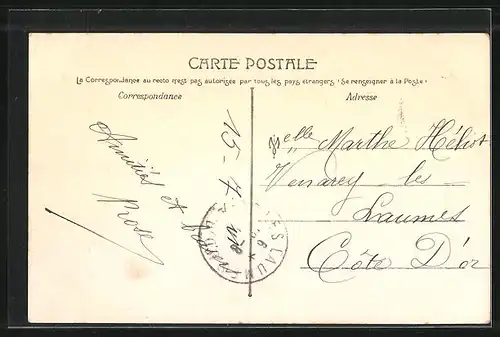 CARTE POSTALE
La Correspondance au recto n'est pas autorisée par tous les pays étrangers (Se renseigner à la Poste)
Correspondance
Adresse
15-4
Amitiés et
Rose
Melle Marthe Héliot
Venarey les
Laumes
Côte D'or
LES LAUM